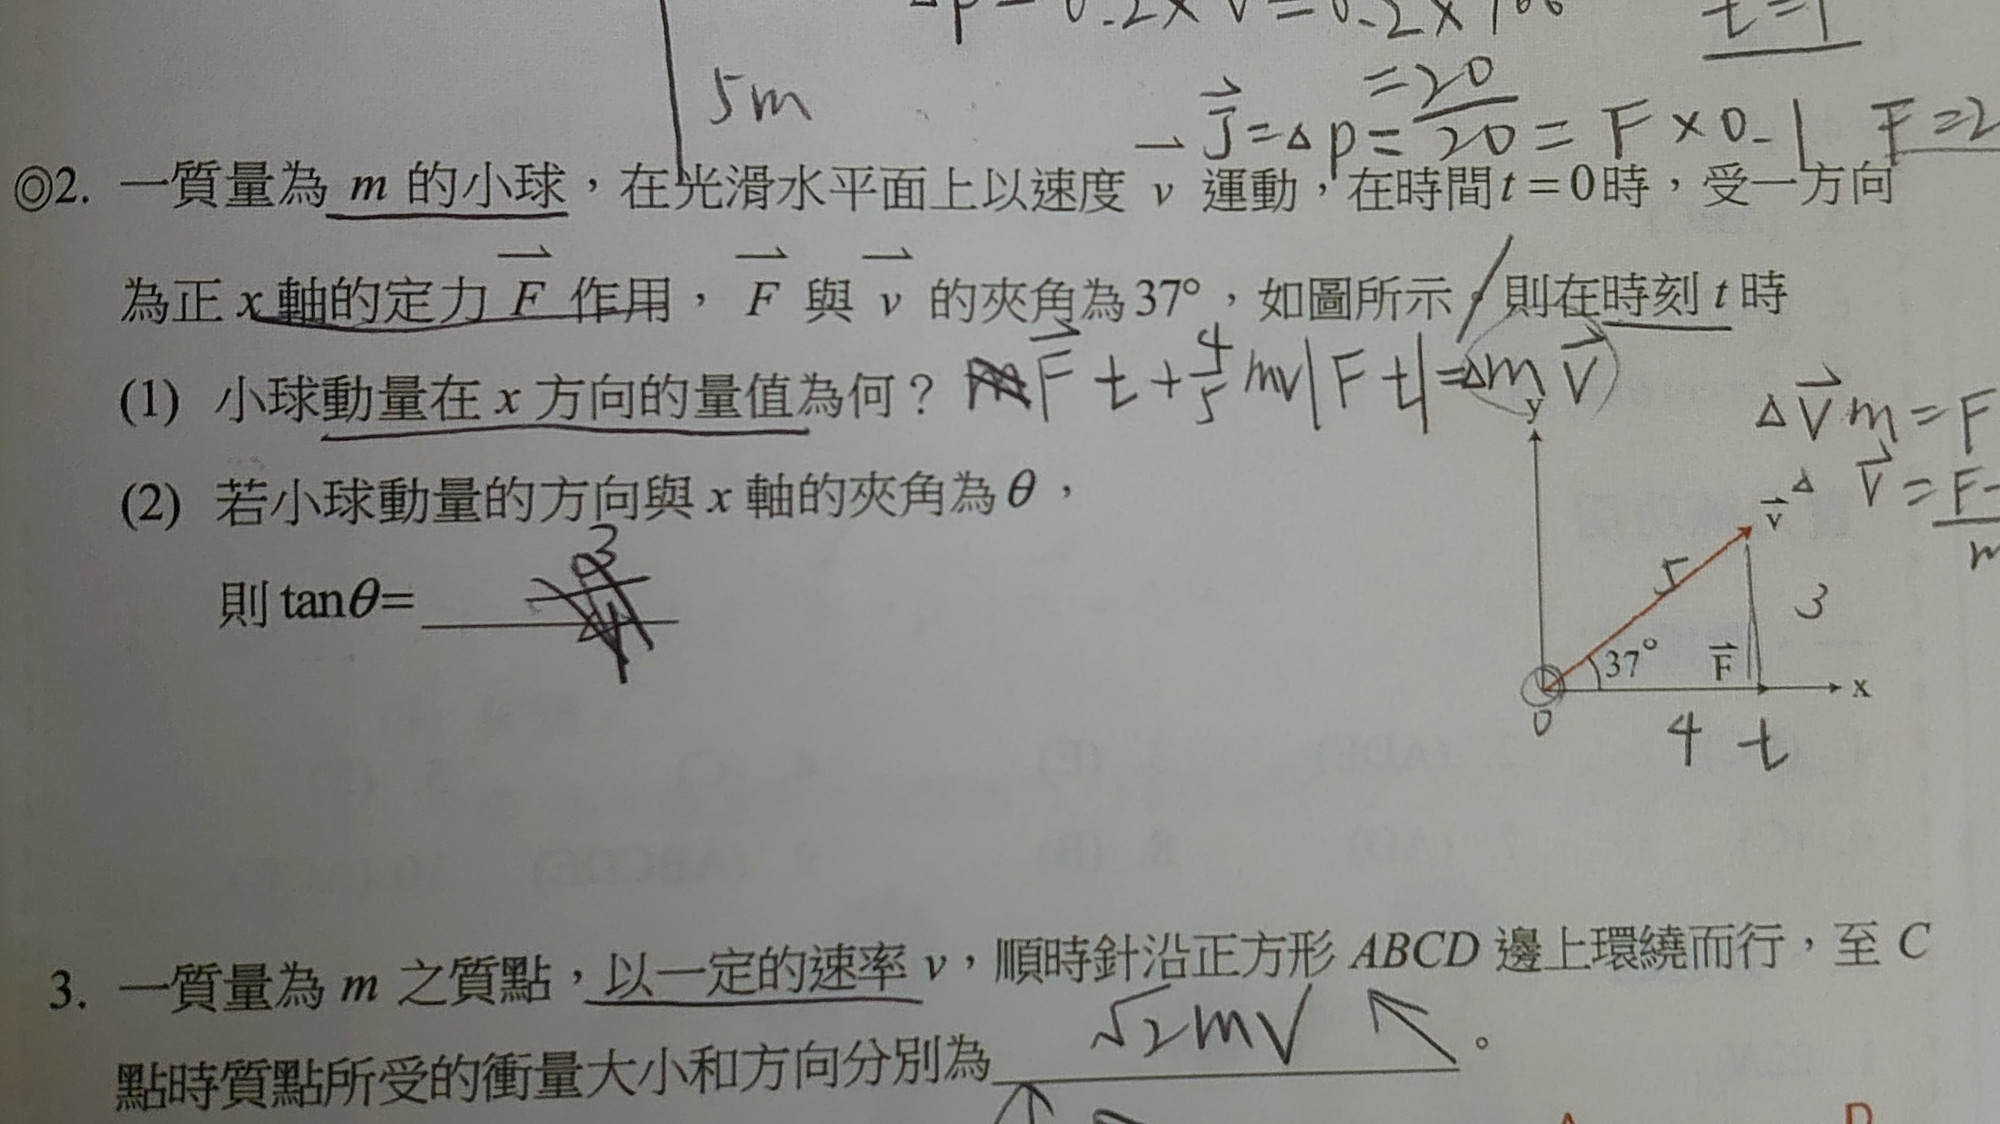 Δp=0.2×v=0.2×100
t=1
=20
5m
J=Δp=20/20=F×0.1 F=2
◎2. 一質量為 m 的小球，在光滑水平面上以速度 v 運動，在時間 t=0時，受一方向
為正 x 軸的定力 F 作用， F 與 v 的夾角為37°，如圖所示。則在時刻 t 時
(1) 小球動量在 x 方向的量值為何？ Ft+4/5mv Ft=ΔmV
ΔVm=F
(2) 若小球動量的方向與 x 軸的夾角為θ，
ΔV=F
m
則 tanθ=
y
v
5
3
37°
F
x
0
4 t
3. 一質量為 m 之質點，以一定的速率 v，順時針沿正方形 ABCD 邊上環繞而行，至 C
√2mv
點時質點所受的衝量大小和方向分別為。